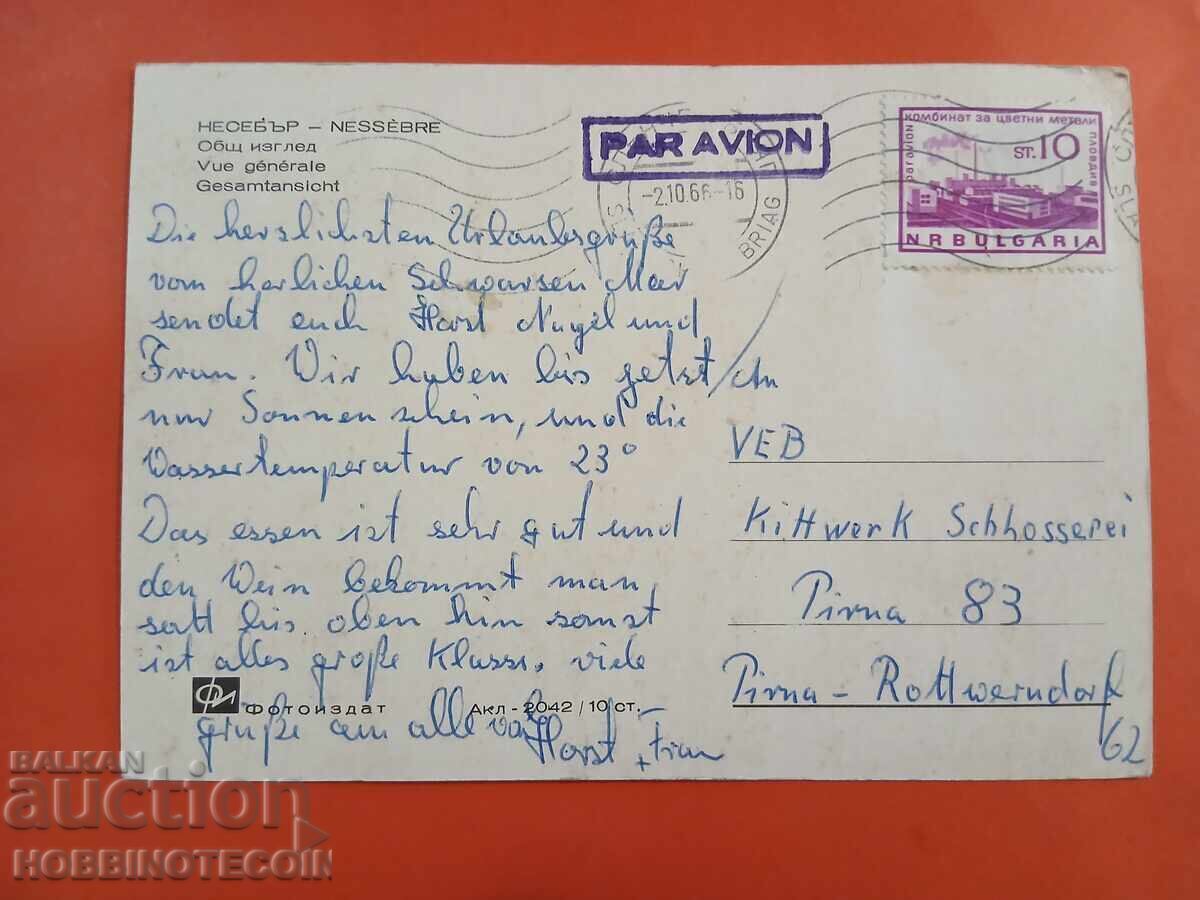 НЕСЕБЪР – NESSÈBRE
Общ изглед
Vue générale
Gesamtansicht
PAR AVION
-2.10.66-16
BRIAG
комбинат за цветни метали
par avion
пловдив
ST.10
NRBULGARIA
Die herslichsten Urlaubsgrüße
vom herlichen Schwarsen Meer
sendet euch Horst Nugel und
Frau. Wir haben bis getzt
nur Sonnenschein, und die
Wassertemperatur von 23°
Das essen ist sehr gut und
den Wein bekommt man
satt bis oben hin sonst
ist alles große Klasse. viele
grüße an alle von
Horst + Frau
An
VEB
Kittwerk Schlosserei
Pirna 83
Pirna - Rottwerndorf
62
ФИ Фотоиздат Акл - 2042 / 10 ст.
BALKAN
auction
HOBBINOTECOIN